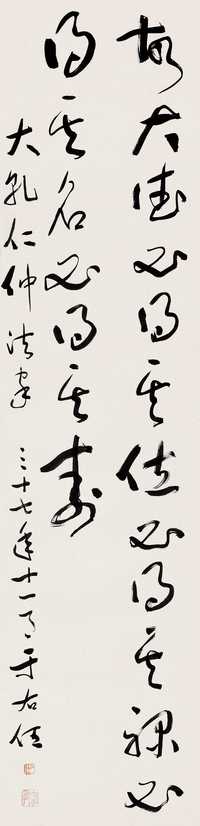 故大德必得其位必得其祿必
得其名必得其壽
大乳仁仲法家
三十七年十一月于右任